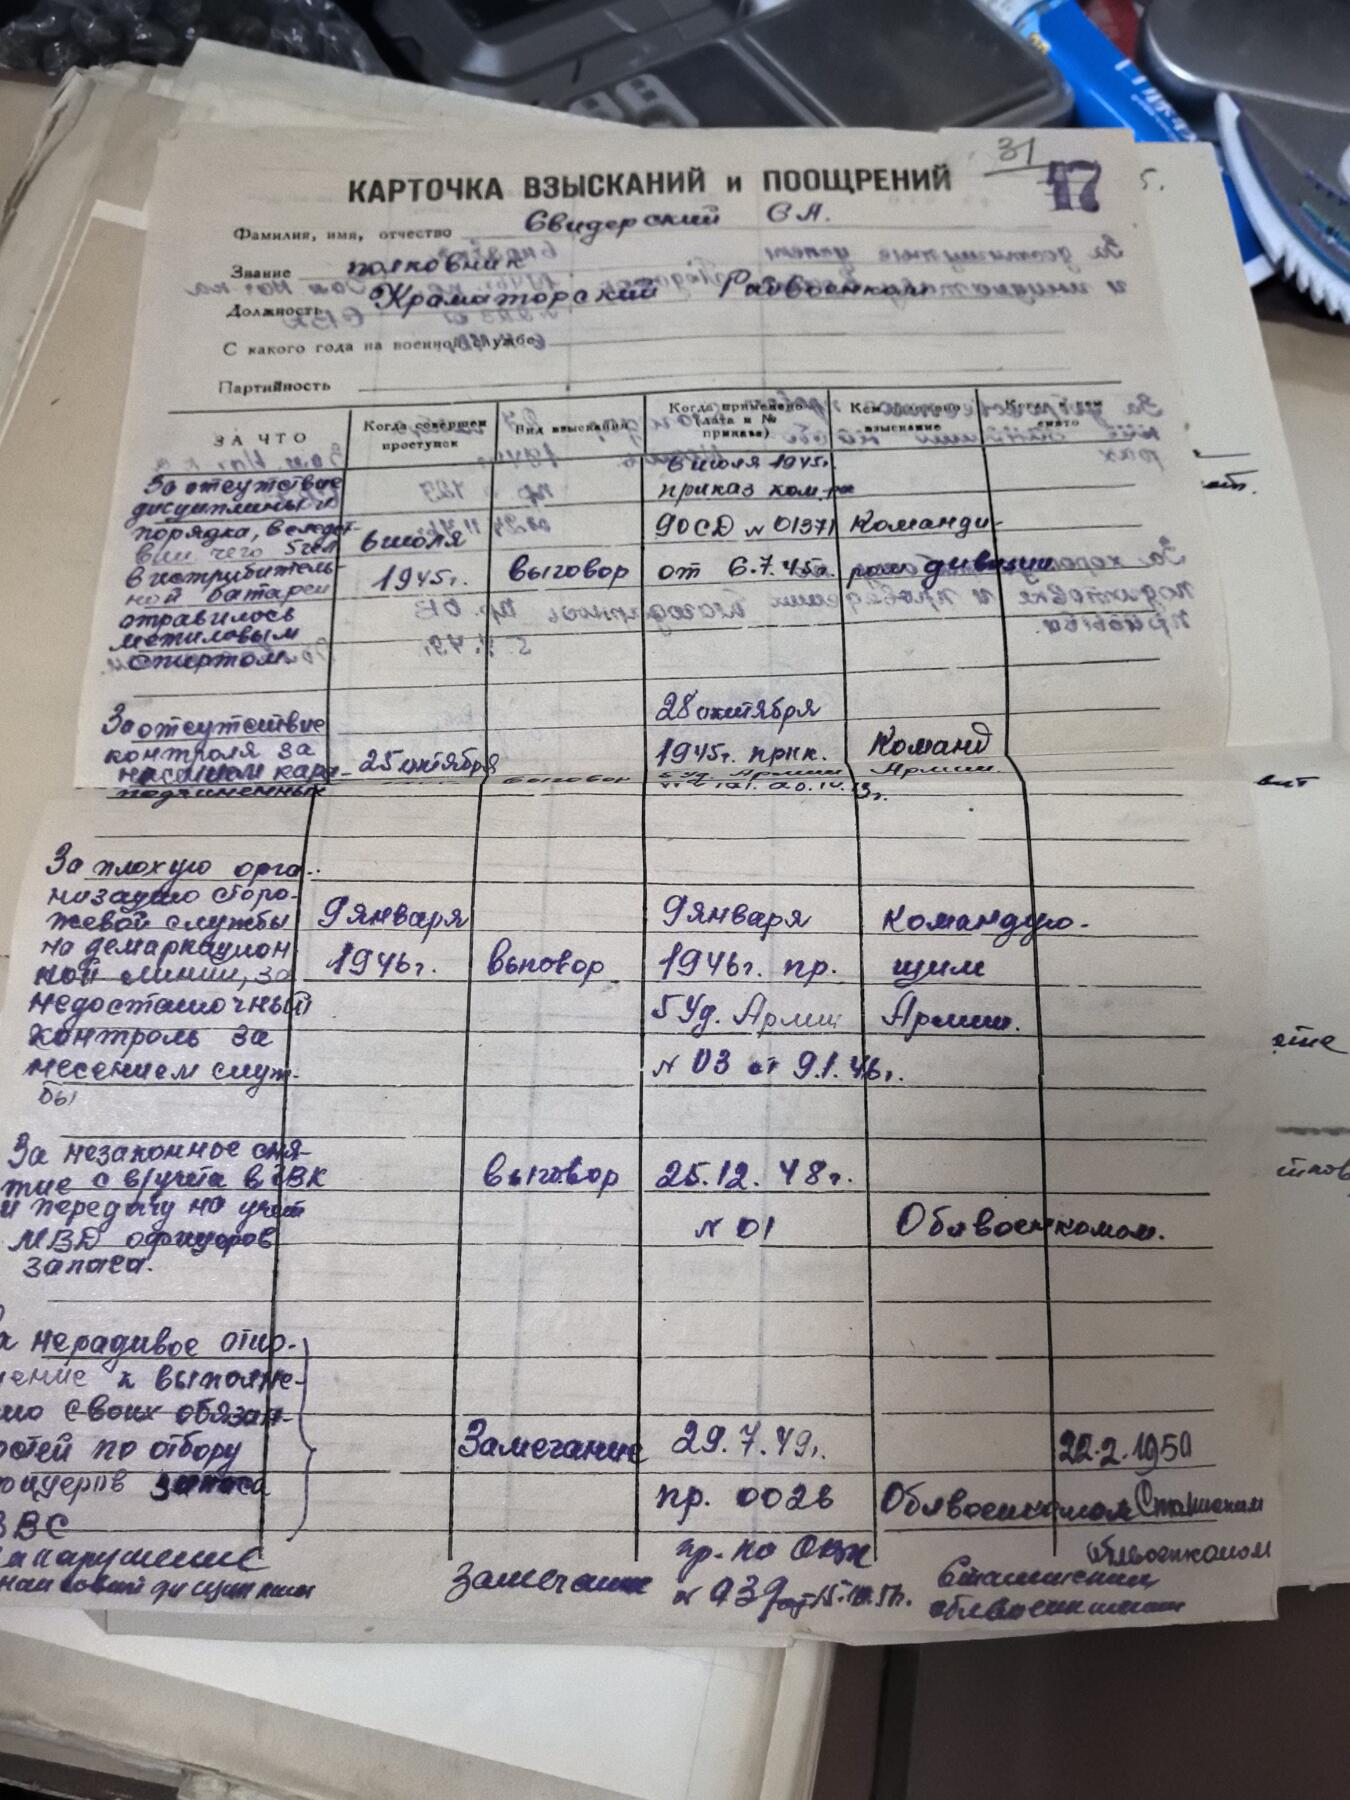 31
17
5.
КАРТОЧКА ВЗЫСКАНИЙ и ПООЩРЕНИЙ
Фамилия, имя, отчество Свидерский С А.
Звание полковник
Должность Краматорский Райвоенком
С какого года на военной службе
Партийность
ЗА ЧТО
Когда совершен проступок
Вид взыскания
Когда применено (дата и № приказа)
Кем применено взыскание
Когда и кем снято
За отсутствие
дисциплины и
порядка, вследст-
вии чего 5 чел
в истребитель-
ной батареи
отравилось
метиловым
спиртом
6 июля
1945г.
выговор
6 июля 1945г.
приказ ком-ра
90СД №01371
от 6.7.45г.
Команди-
ром дивизии
За отсутствие
контроля за
несением кара-
подчиненных
25 октября
выговор
28 октября
1945г. прик.
5 Уд. Армии
Команд
Армии.
За плохую орга-
низацию сторо-
жевой службы
на демаркацион
ной линии, за
недостаточный
контроль за
несением служ-
бы
9 января
1946г.
выговор
9 января
1946г. пр.
5 Уд. Армии
№ 03 от 9.1.46г.
Командую-
щим
Армии.
За незаконное сня-
тие с в/учета в ГВК
и передачу на учет
МВД офицеров
запаса.
выговор
25.12.48г.
№ 01
Облвоенкомом.
нерадивое отно-
шение к выполне-
нию своих обязан-
ностей по отбору
офицеров запаса
ВВС
Замечание
29.7.49г.
пр. 0026
Облвоенкомом
22.2.1950
Сташиским
облвоенкомом
За нарушение
Замечание
пр. по ОВК
Сташиским
облвоенкомом